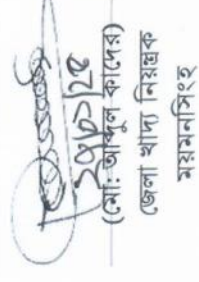 ২৭/০৮/২৫
(মো: আব্দুল কাদের)
জেলা খাদ্য নিয়ন্ত্রক
ময়মনসিংহ